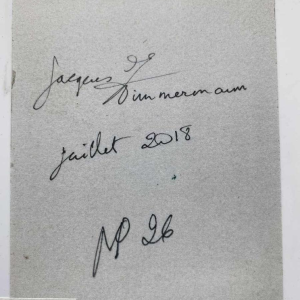 Jacques Zimmermann
juillet 2018
NP 26